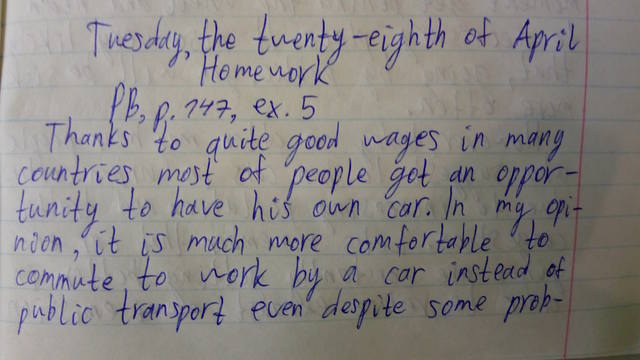 Tuesday, the twenty-eighth of April
Homework
PB, p. 147, ex. 5
Thanks to quite good wages in many
countries most of people got an oppor-
tunity to have his own car. In my opi-
nion, it is much more comfortable to
commute to work by a car instead of
public transport even despite some prob-